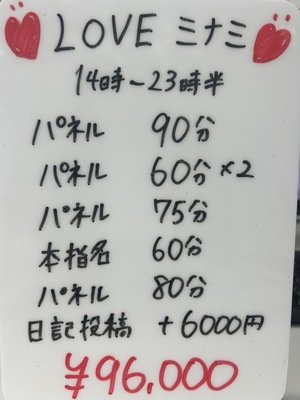 LOVE ミナミ
14時~23時半
パネル 90分
パネル 60分×2
パネル 75分
本指名 60分
パネル 80分
日記投稿 +6000円
¥96,000